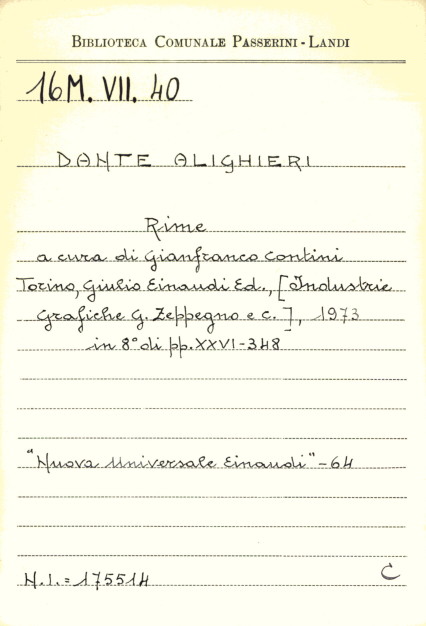 BIBLIOTECA COMUNALE PASSERINI - LANDI
16M. VII. 40
DANTE ALIGHIERI
Rime
a cura di Gianfranco Contini
Torino, Giulio Einaudi Ed., [Industrie
Grafiche G. Zeppegno e c. ], 1973
in 8° di pp. XXVI-348
"Nuova Universale Einaudi" - 64
N.I. = 175514
C